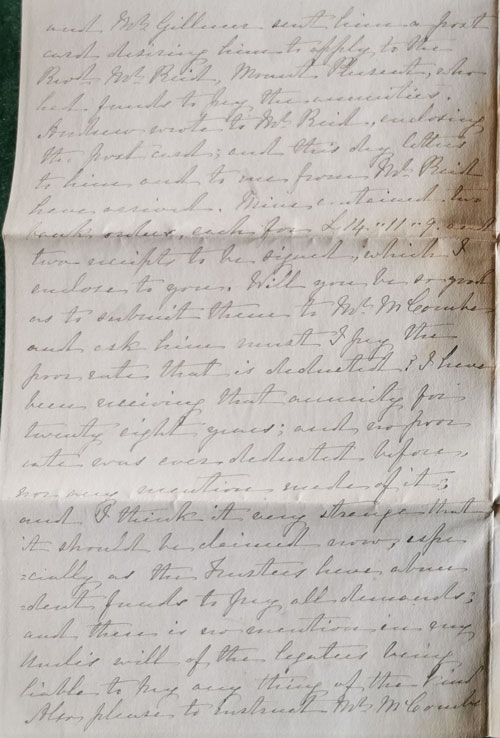 and Mr. Gillmer sent him a post
card desiring him to apply to the
Revd. Mr. Reid, Mount Pleasent, who
had funds to pay the annuities.
Andrew wrote to Mr. Reid, enclosing
the post card; and this day letters
to him and to me from Mr. Reid
have arrived. Mine contained two
bank orders, each for £14..11..9. and
two receipts to be signed, which I
enclose to you. Will you be so good
as to submit them to Mr. McCombe
and ask him must I pay the
poor rate that is deducted? I have
been receiving that annuity for
twenty eight years; and no poor
rate was ever deducted before,
nor any mention made of it;
and I think it very strange that
it should be claimed now, espe
=cially as the Trustees have abun
=dent funds to pay all demands;
and there is no mention in my
Uncles will of the legatees being
liable to pay any thing of the kind
Also please to instruct Mr. McCombe